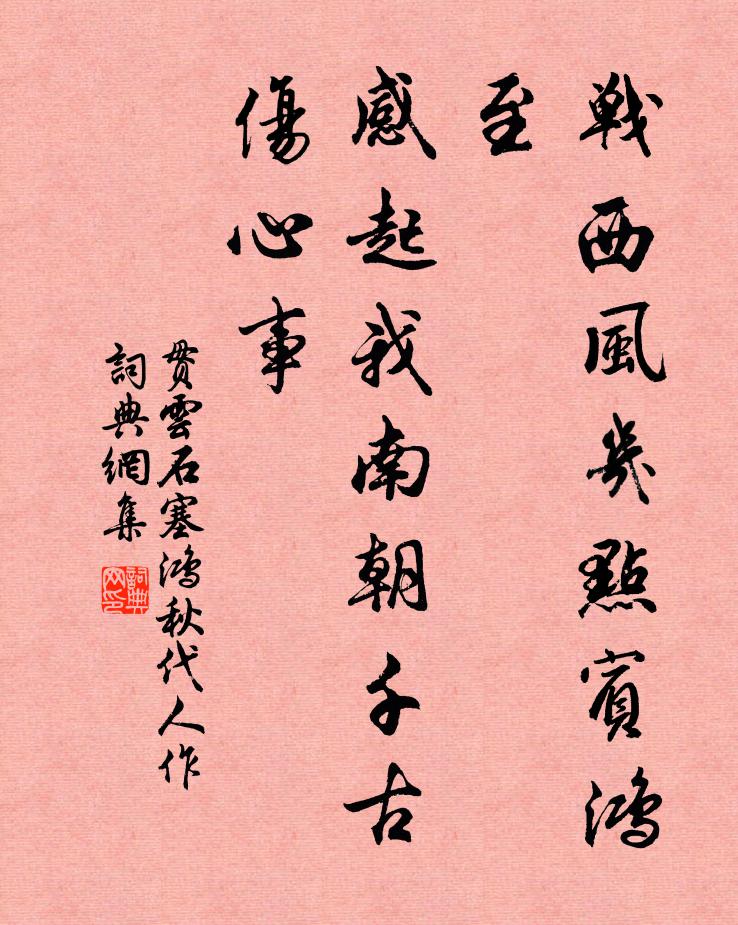 戰西風幾點賓鴻
至
感起我南朝千古
傷心事
貫雲石塞鴻秋代人作
詞典網集
詞典网印